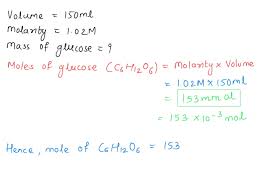 Volume = 150ml
Molarity = 1.02M
Mass of glucose = ?
Moles of glucose (C6H12O6) = Molarity x Volume
= 1.02M x 150ml
= 153mmol
= 153 x 10⁻³ mol
Hence, mole of C6H12O6 = 153